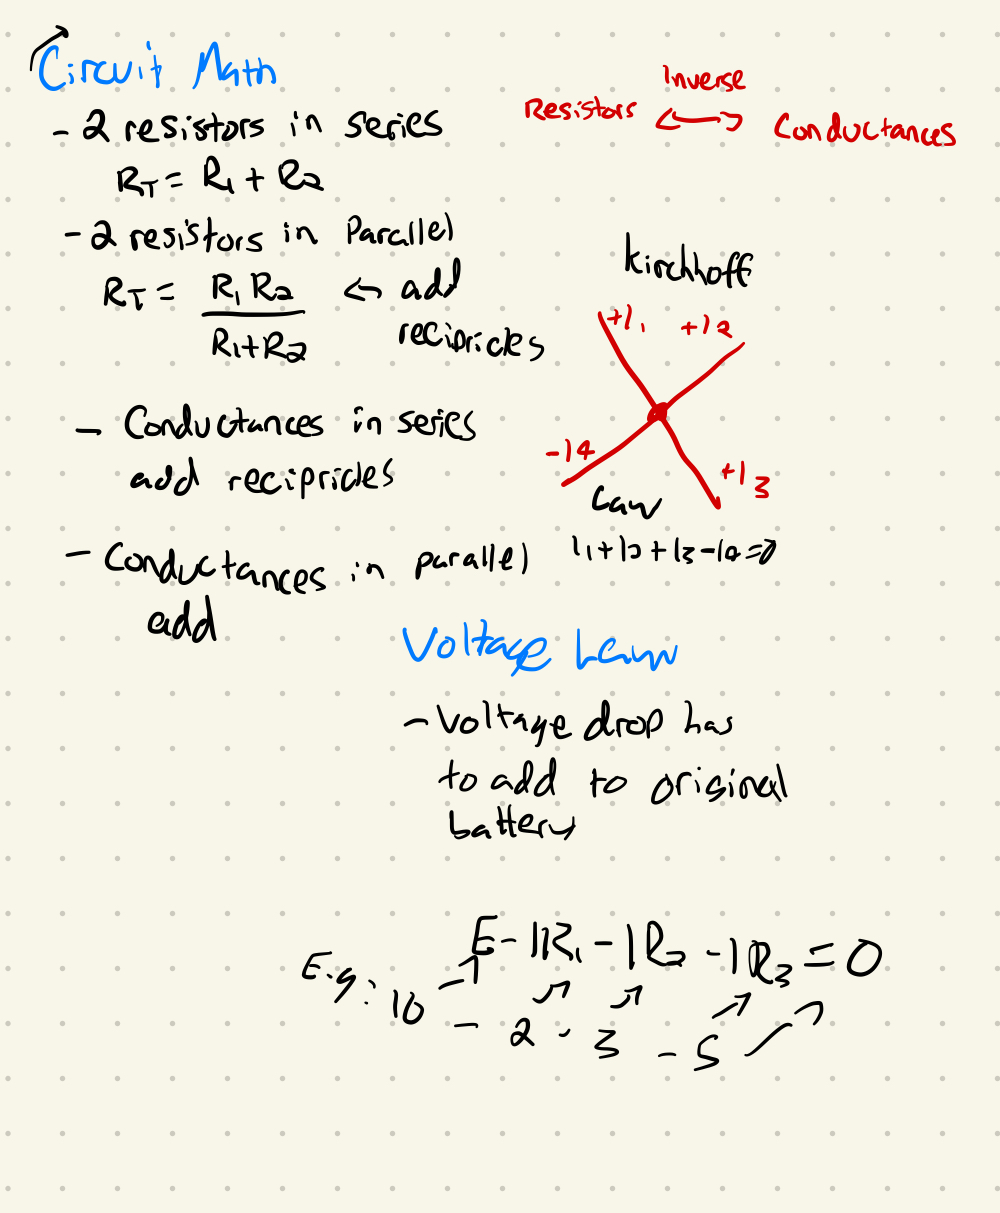 Circuit Math
- 2 resistors in series
RT = R1 + R2
- 2 resistors in Parallel
RT = R1 R2 / R1+R2 ← add
recipricles
- Conductances in series
add recipricles
- Conductances in parallel
add
Inverse
Resistors ↔ Conductances
kirchhoff
+I1 +I2
-I4 +I3
Law
I1+I2+I3-I4=0
Voltage Law
- Voltage drop has
to add to original
battery
E - IR1 - IR2 - IR3 = 0
E.g: 10 - 2 - 3 - 5